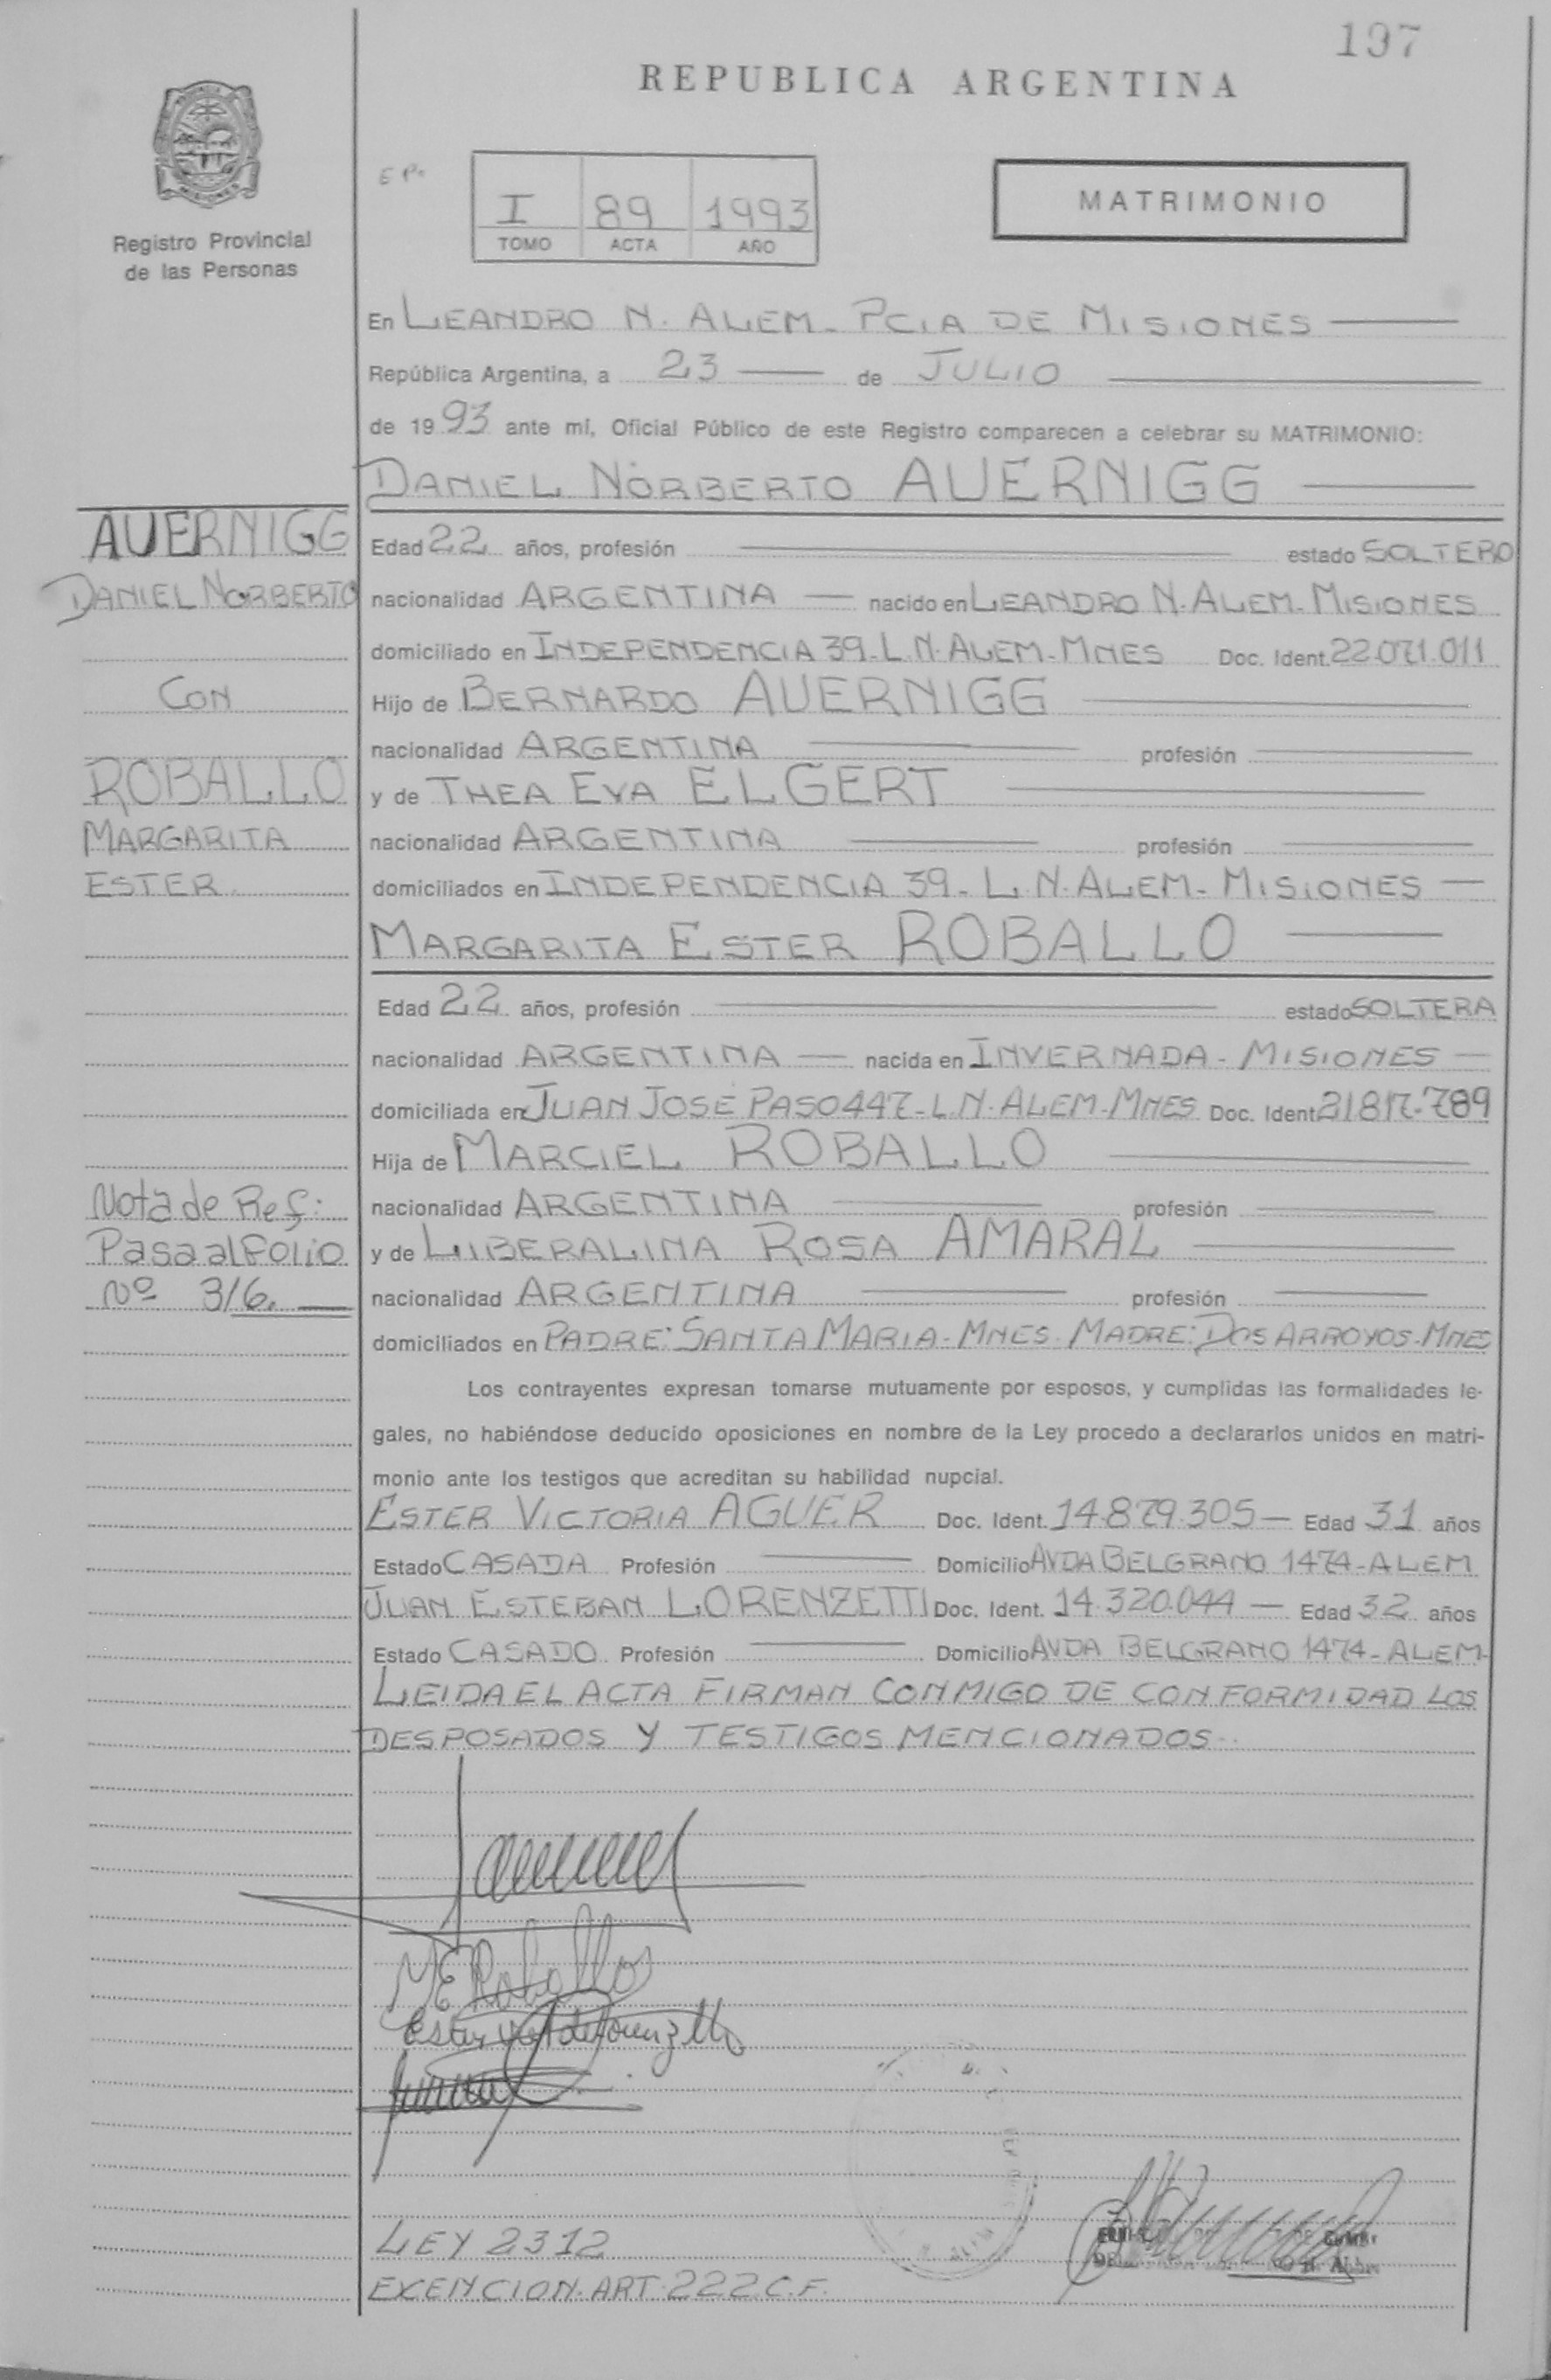 197
REPUBLICA ARGENTINA
MISIONES
Registro Provincial
de las Personas
I 89 1993
TOMO ACTA AÑO
MATRIMONIO
En LEANDRO N. ALEM - PCIA DE MISIONES
República Argentina, a 23 de JULIO
de 1993 ante mí, Oficial Público de este Registro comparecen a celebrar su MATRIMONIO:
DANIEL NORBERTO AUERNIGG
AUERNIGG
DANIEL NORBERTO
CON
ROBALLO
MARGARITA
ESTER
Edad 22 años, profesión estado SOLTERO
nacionalidad ARGENTINA nacido en LEANDRO N. ALEM - MISIONES
domiciliado en INDEPENDENCIA 39 - L. N. ALEM - MNES Doc. Ident. 22.071.011
Hijo de BERNARDO AUERNIGG
nacionalidad ARGENTINA profesión
y de THEA EVA ELGERT
nacionalidad ARGENTINA profesión
domiciliados en INDEPENDENCIA 39 - L. N. ALEM - MISIONES
MARGARITA ESTER ROBALLO
Edad 22 años, profesión estado SOLTERA
nacionalidad ARGENTINA nacida en INVERNADA - MISIONES
domiciliada en JUAN JOSÉ PASO 447 - L. N. ALEM - MNES Doc. Ident. 21.817.789
Hija de MARCIEL ROBALLO
nacionalidad ARGENTINA profesión
y de LIBERALINA ROSA AMARAL
nacionalidad ARGENTINA profesión
domiciliados en PADRE: SANTA MARIA - MNES. MADRE: DOS ARROYOS - MNES
Nota de Ref:
Pasa al Folio
Nº 316.
Los contrayentes expresan tomarse mutuamente por esposos, y cumplidas las formalidades le-
gales, no habiéndose deducido oposiciones en nombre de la Ley procedo a declararlos unidos en matri-
monio ante los testigos que acreditan su habilidad nupcial.
ESTER VICTORIA AGUER Doc. Ident. 14.879.305 - Edad 31 años
Estado CASADA Profesión Domicilio AVDA BELGRANO 1474 - ALEM
JUAN ESTEBAN LORENZETTI Doc. Ident. 14.320.044 - Edad 32 años
Estado CASADO Profesión Domicilio AVDA BELGRANO 1474 - ALEM -
LEIDA EL ACTA FIRMAN CONMIGO DE CONFORMIDAD LOS
DESPOSADOS Y TESTIGOS MENCIONADOS -
ME Roballo
LEY 2312
EXENCION. ART. 222 C.F.